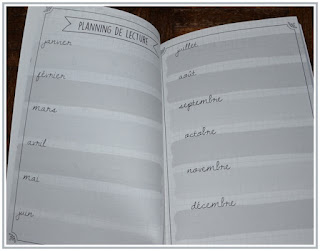 PLANNING DE LECTURE
janvier
février
mars
avril
mai
juin
juillet
août
septembre
octobre
novembre
décembre